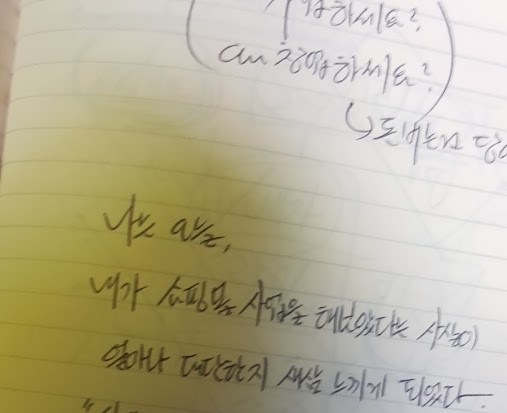 하세요?
왜 창업하세요?
↳돈버는건
나는 오늘,
내가 쇼핑몰 사업을 해보았다는 사실이
얼마나 대단한지 새삼 느끼게 되었다.